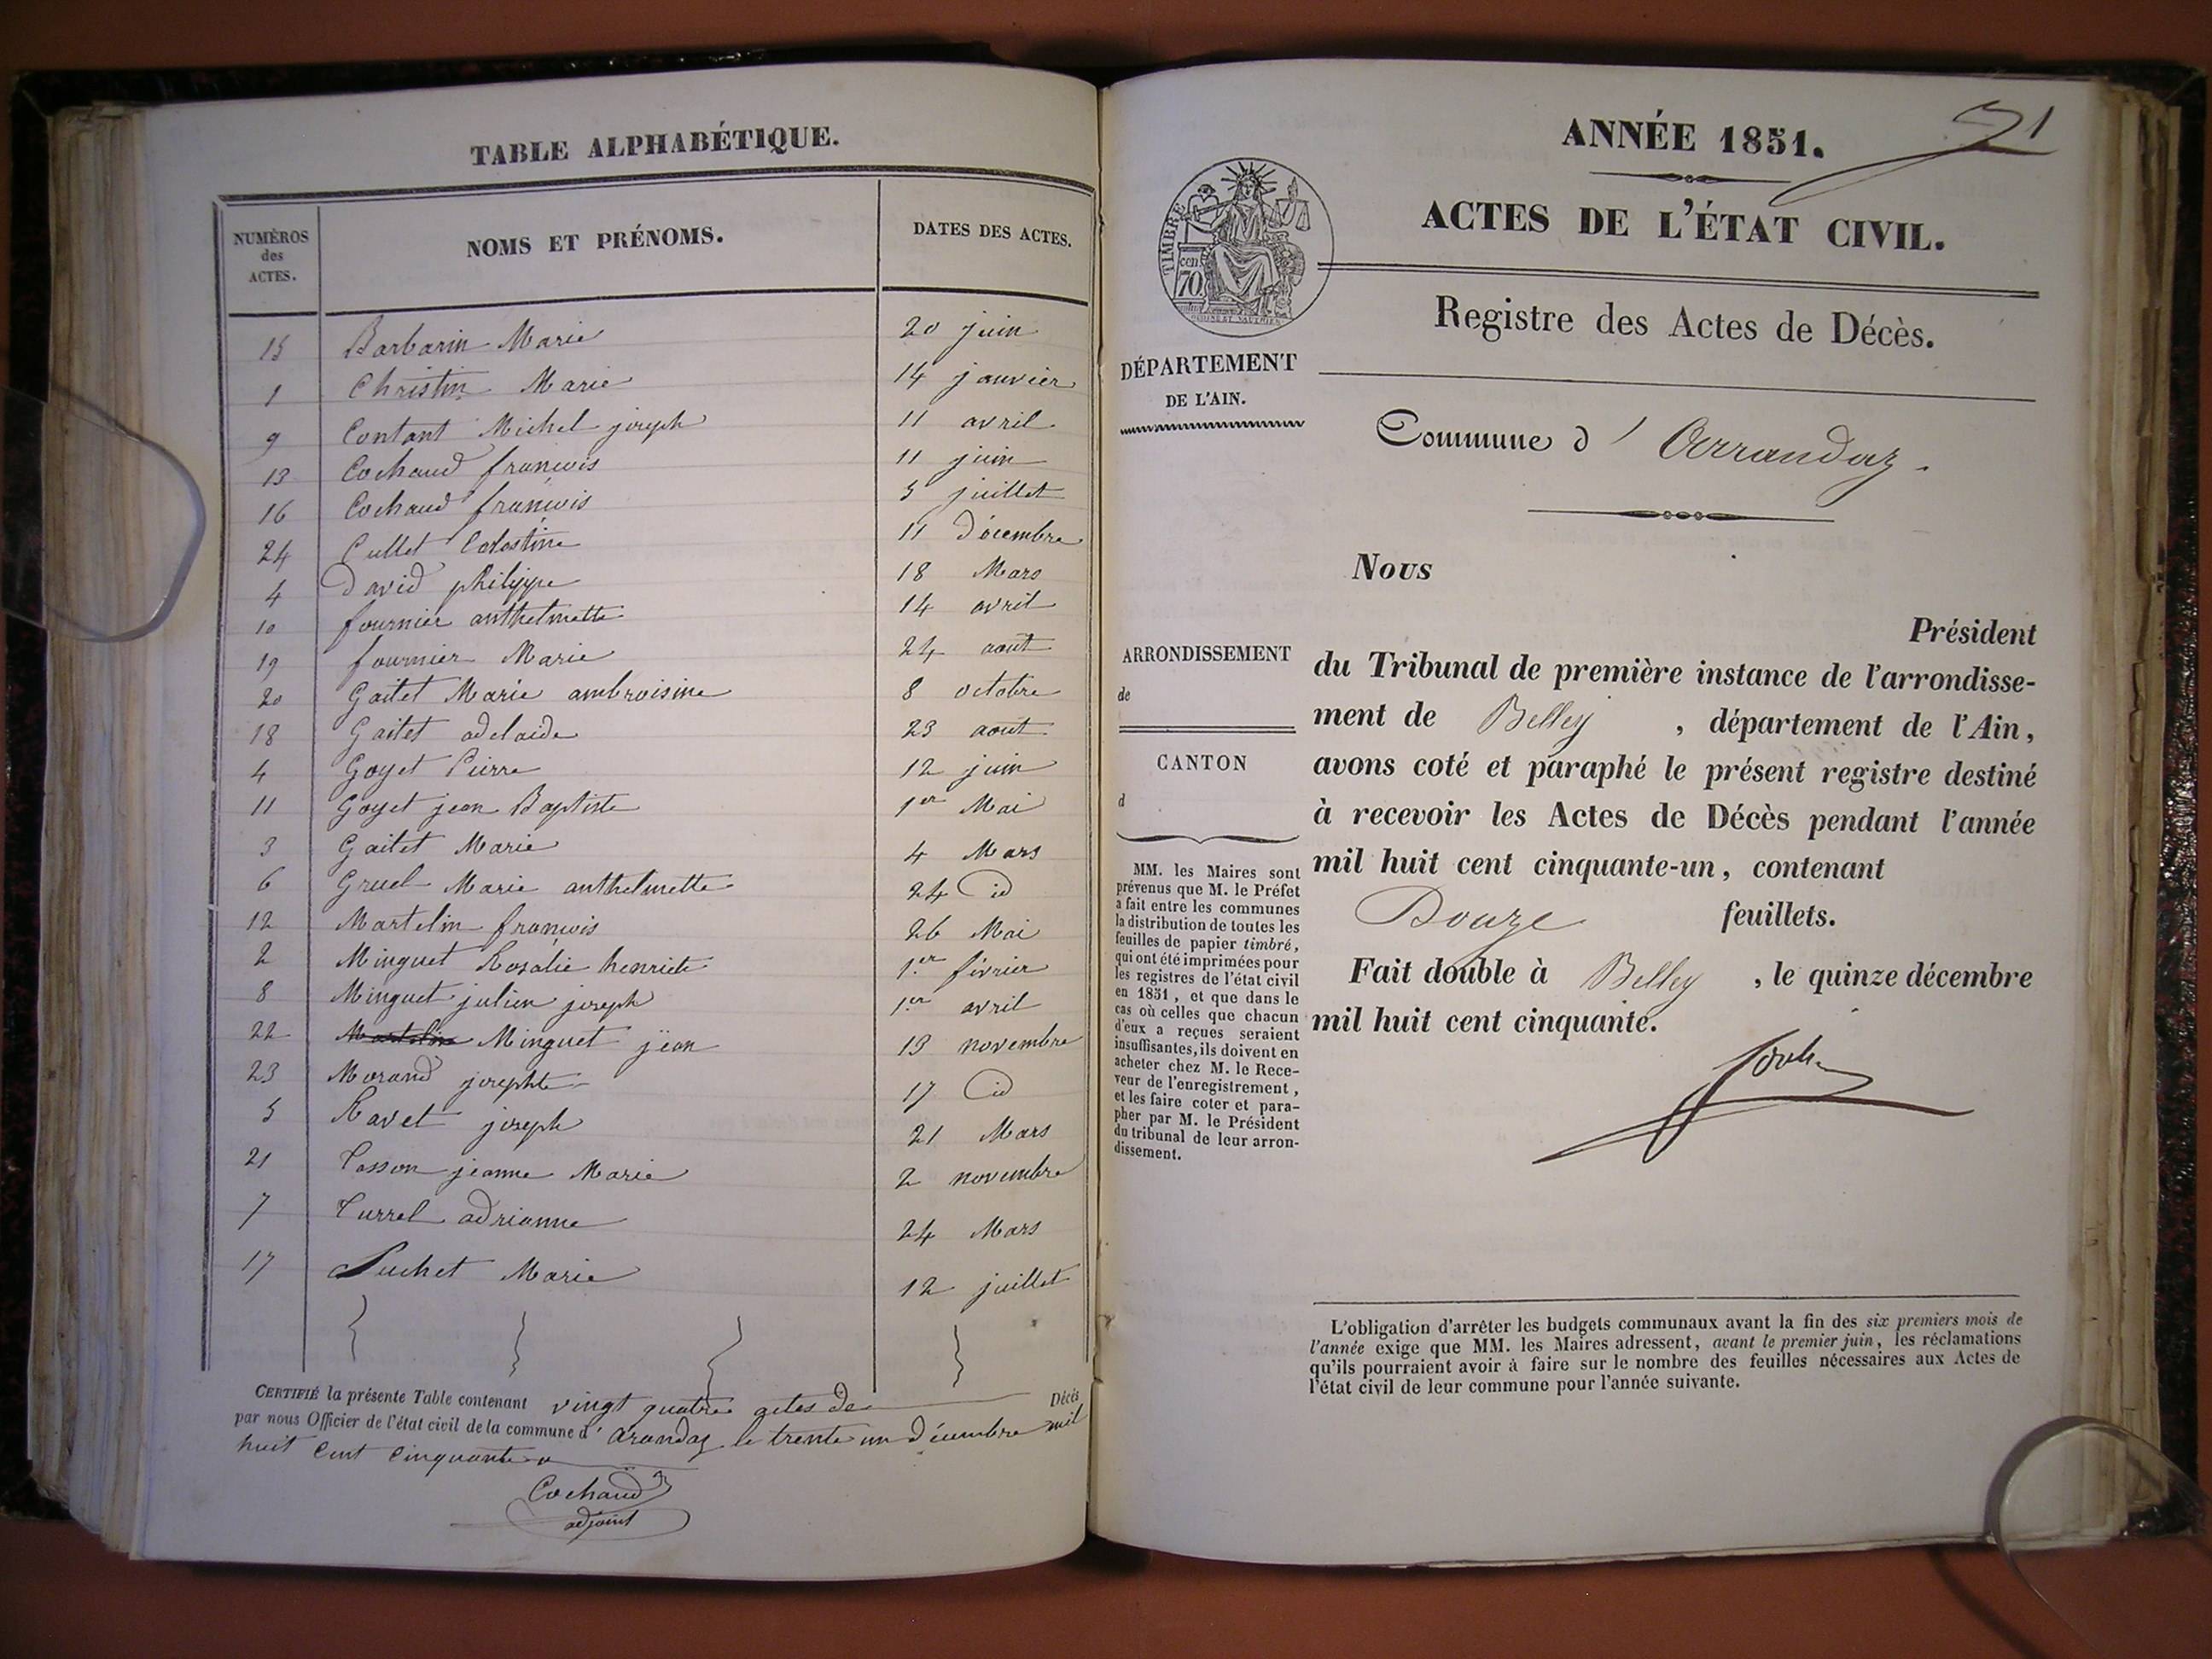 TABLE ALPHABÉTIQUE.
NUMÉROS des ACTES. NOMS ET PRÉNOMS. DATES DES ACTES.
15 Barbarin Marie 20 juin
1 Christin Marie 14 janvier
9 Contant Michel joseph 11 avril
13 Cochaud francois 11 juin
16 Cochaud francois 5 juillet
24 Cullet Celestine 11 Décembre
4 David philippe 18 Mars
10 fournier anthelmette 14 avril
19 fournier Marie 24 aout
20 Gaitet Marie ambroisine 8 octobre
18 Gaitet adelaide 23 aout
4 Goyet Pierre 12 juin
11 Goyet jean Baptiste 1er Mai
3 Gaitet Marie 4 Mars
6 Gruel Marie anthelmette 24 id
12 Martelin francois 26 Mai
2 Minguet Rosalie henriete 1er février
8 Minguet julien joseph 1er avril
22 Martelin Minguet jean 13 novembre
23 Morand josephte 17 id
5 Ravet joseph 21 Mars
21 Tasson jeanne Marie 2 novembre
7 Turrel adrianne 24 Mars
17 Puchet Marie 12 juillet
CERTIFIÉ la présente Table contenant vingt quatre actes de Décès
par nous Officier de l'état civil de la commune d' arandas le trente un décembre mil
huit cent cinquante
Cochaud
adjoint
21
ANNÉE 1851.
ACTES DE L'ÉTAT CIVIL.
TIMBRE
cen.
70
Registre des Actes de Décès.
DÉPARTEMENT
DE L'AIN.
Commune d' Arrandaz.
Nous
Président
du Tribunal de première instance de l'arrondisse-
ment de Belley, département de l'Ain,
avons coté et paraphé le présent registre destiné
à recevoir les Actes de Décès pendant l'année
mil huit cent cinquante-un, contenant
Douze feuillets.
Fait double à Belley, le quinze décembre
mil huit cent cinquante.
ARRONDISSEMENT
de
CANTON
d
MM. les Maires sont
prévenus que M. le Préfet
a fait entre les communes
la distribution de toutes les
feuilles de papier timbré,
qui ont été imprimées pour
les registres de l'état civil
en 1851, et que dans le
cas où celles que chacun
d'eux a reçues seraient
insuffisantes, ils doivent en
acheter chez M. le Rece-
veur de l'enregistrement,
et les faire coter et para-
pher par M. le Président
du tribunal de leur arron-
dissement.
L'obligation d'arrêter les budgets communaux avant la fin des six premiers mois de
l'année exige que MM. les Maires adressent, avant le premier juin, les réclamations
qu'ils pourraient avoir à faire sur le nombre des feuilles nécessaires aux Actes de
l'état civil de leur commune pour l'année suivante.